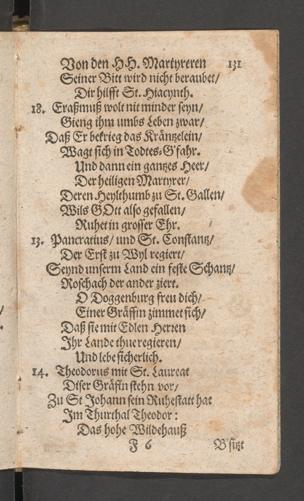 Von den HH. Martyreren 131
Seiner Bitt wird nicht beraubet/
Dir hilfft St. Hiacynth.
18. Eraßmuß wolt nit minder seyn/
Gieng ihm umbs Leben zwar/
Daß Er bekrieg das Kräntzelein/
Wagt sich in Todtes-G'fahr.
Und dann ein gantzes Heer/
Der heiligen Martyrer/
Deren Heylthumb zu St. Gallen/
Wils GOtt also gefallen/
Ruhet in grosser Ehr.
13. Pancratius/ und St. Constantz/
Der Erst zu Wyl regiert/
Seynd unserm Land ein feste Schantz/
Roschach der ander ziert.
O Doggenburg freu dich/
Einer Gräffin zimmet sich/
Daß sie mit Edlen Herren
Jhr Lande thue regieren/
Und lebe sicherlich.
14. Theodorus mit St. Laureat
Diser Gräfin stehn vor/
Zu St Johann sein Ruhestatt hat
Jm Thurthal Theodor:
Das hohe Wildehauß
F 6 B'sitzt